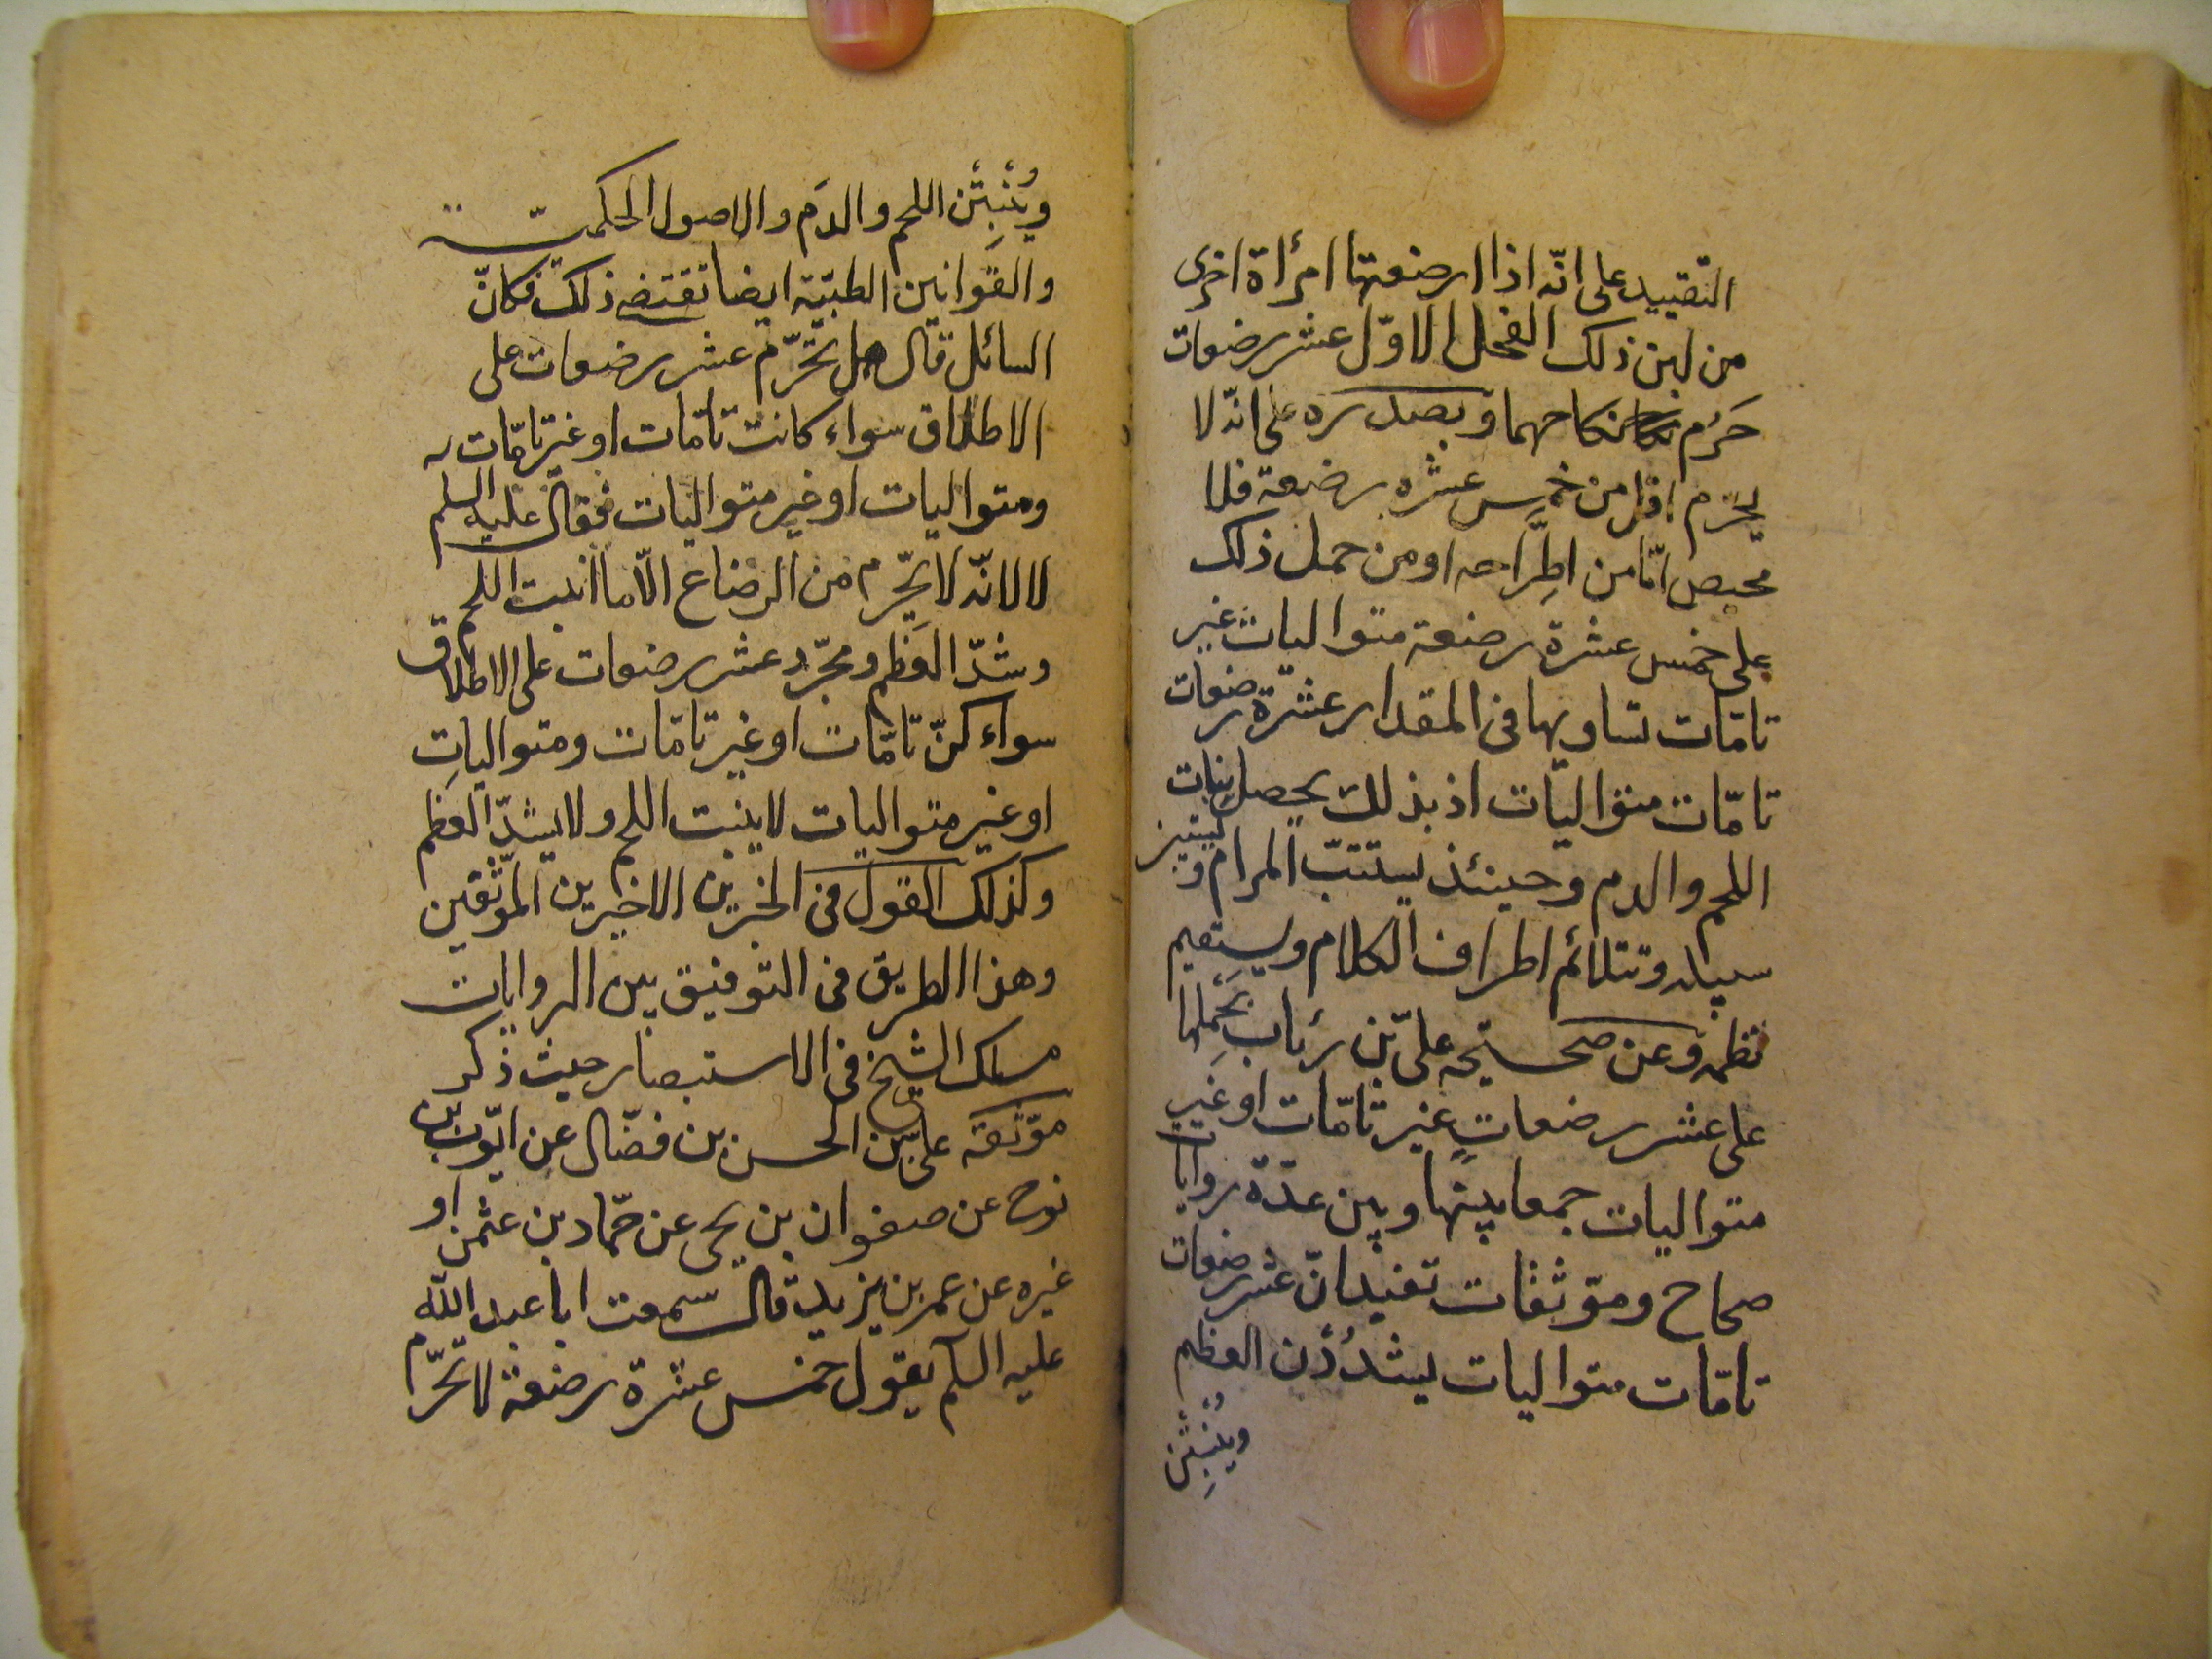 التقييد على انّه اذا ارضعتها امرأة اخرى
من لبن ذلك الفحل الاوّل عشر رضعات
حَرُم نكاحهما وبصدره على انّه لا
يحرّم اقل من خمس عشره رضعة فلا
محيص امّا من اطّراحه او من حمل ذلك
على خمس عشرة رضعة متواليات غير
تامّات تساويها فى المقدار عشرة رضعات
تامّات متواليات اذ بذلك يحصل نبات
اللحم والدم وحينئذ يستتبّ المرام و
سبيله وتتلائم اطراف الكلام ويستقيم
نظمه وعن صحيحة علىّ بن رئاب بحَملها
على عشر رضعاتٍ غير تامّات او غير
متواليات جمعا بينها وبين عدّة روايات
صحاح وموثقات تفيد انّ عشر رضعات
تامّات متواليات يشدُدْن العظم
ويُنْبِتْن
ويُنْبِتْن اللحم والدَم والاصول الحكميّة
والقوانين الطبيّة ايضا تقتضى ذلك فكانّ
السائل قال هل تحرّم عشر رضعات على
الاطلاق سواء كانت تامّات او غير تامّات
ومتواليات او غير متواليات فقال عليه السلم
لا لانّه لا يحّرم من الرضاع الّا ما انبت اللحم
وشدّ العظم ومجرّد عشر رضعات على الاطلاق
سواء كنّ تامّات او غير تامّات ومتوالياتِ
او غير متواليات لا ينبت اللحم ولا يشدّ العظم
وكذلك القول فى الخبرين الاخيرين الموثقين
وهذا الطريق فى التوفيق بين الروايات
مسلك الشيخ فى الاستبصار حيث ذكر
موثقة علىّ بن الحسن بن فضّال عن ايّوب بن
نوح عن صفوان بن يحيى عن حمّاد بن عثمن او
غيره عن عمر بن يزيد قال سمعت ابا عبد الله
عليه السلم يقول خمس عشرة رضعة لا تحرّم